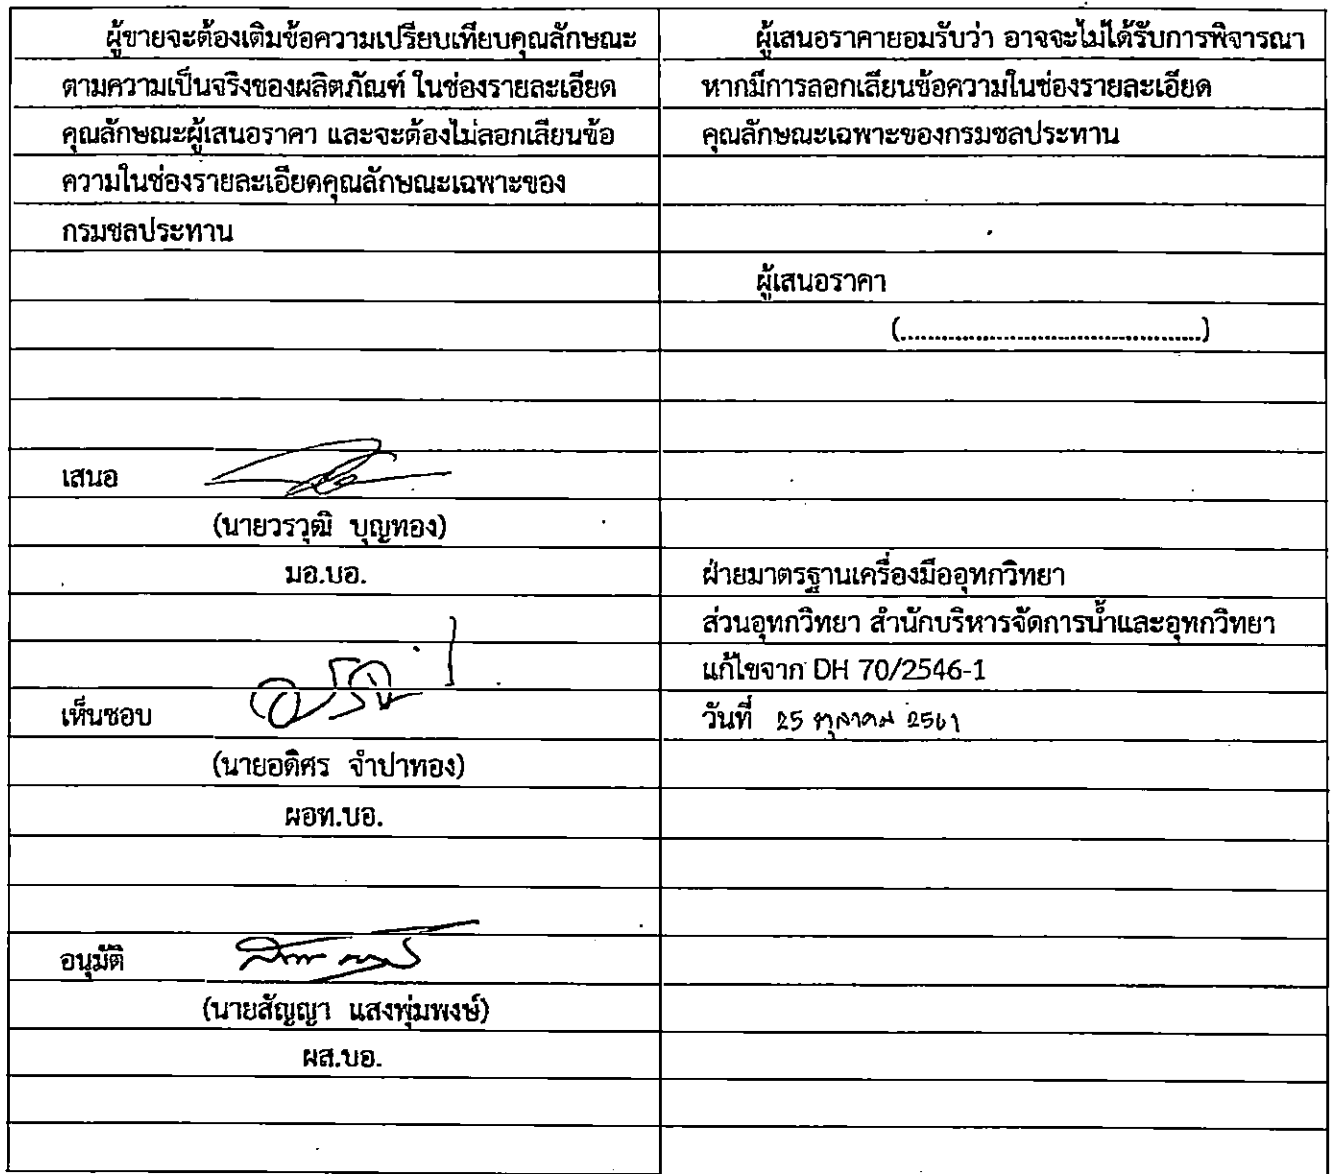 ผู้ขายจะต้องเติมข้อความเปรียบเทียบคุณลักษณะ
ตามความเป็นจริงของผลิตภัณฑ์ ในช่องรายละเอียด
คุณลักษณะผู้เสนอราคา และจะต้องไม่ลอกเลียนข้อ
ความในช่องรายละเอียดคุณลักษณะเฉพาะของ
กรมชลประทาน
เสนอ
(นายวรวุฒิ บุญทอง)
มอ.บอ.
เห็นชอบ
(นายอดิศร จำปาทอง)
ผอท.บอ.
อนุมัติ
(นายสัญญา แสงพุ่มพงษ์)
ผส.บอ.
ผู้เสนอราคายอมรับว่า อาจจะไม่ได้รับการพิจารณา
หากมีการลอกเลียนข้อความในช่องรายละเอียด
คุณลักษณะเฉพาะของกรมชลประทาน
ผู้เสนอราคา
(..................................................)
ฝ่ายมาตรฐานเครื่องมืออุทกวิทยา
ส่วนอุทกวิทยา สำนักบริหารจัดการน้ำและอุทกวิทยา
แก้ไขจาก DH 70/2546-1
วันที่ 25 ตุลาคม 2561